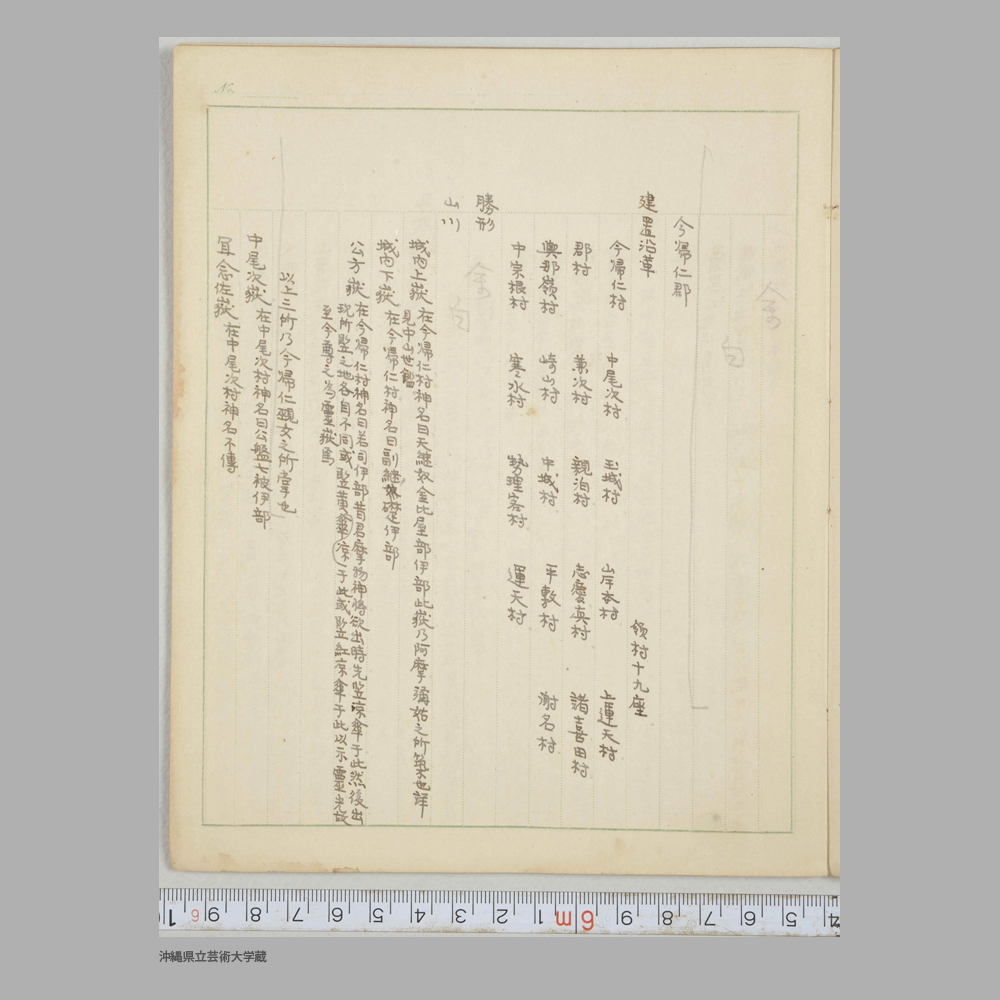 No.
今帰仁郡
建置沿革
領村十九座
今帰仁村 中尾次村 玉城村 山岸本村 上運天村
郡村 兼次村 親泊村 志慶真村 諸喜田村
與那嶺村 崎山村 中城村 平敷村 謝名村
中宗根村 寒水村 勢理客村 運天村
勝形
山川
城内上嶽 在今帰仁村神名曰天継奴金比屋部伊部此嶽乃阿摩彌姑之所築也詳
見中山世鑑
城内下嶽 在今帰仁村神名曰副継奴礎伊部
公方嶽 在今帰仁村神名曰君司伊部昔君摩物神将欲出時先竪凉傘于此然後出
現所竪之地各自不同或竪黄凉傘于此或竪紅凉傘于此以示靈光故
至今尊之為靈嶽焉
以上三所乃今帰仁覡女之所掌也
中尾次嶽 在中尾次村神名曰公盤七被伊部
冝念佐嶽 在中尾次村神名不傳
沖縄県立芸術大学蔵